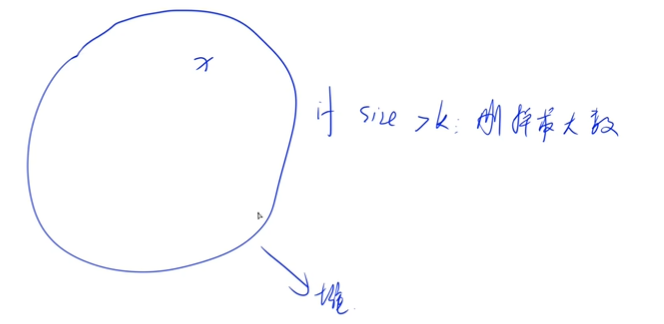 x
if size >k: 删掉最大数
堆